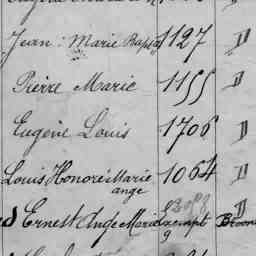 Jean Marie Bapt 1127 D
Pierre Marie 1155 D
Eugène Louis 1706 D
Louis Honoré Marie 1064 D
ange
Ernest Ange Marie Exempt
9